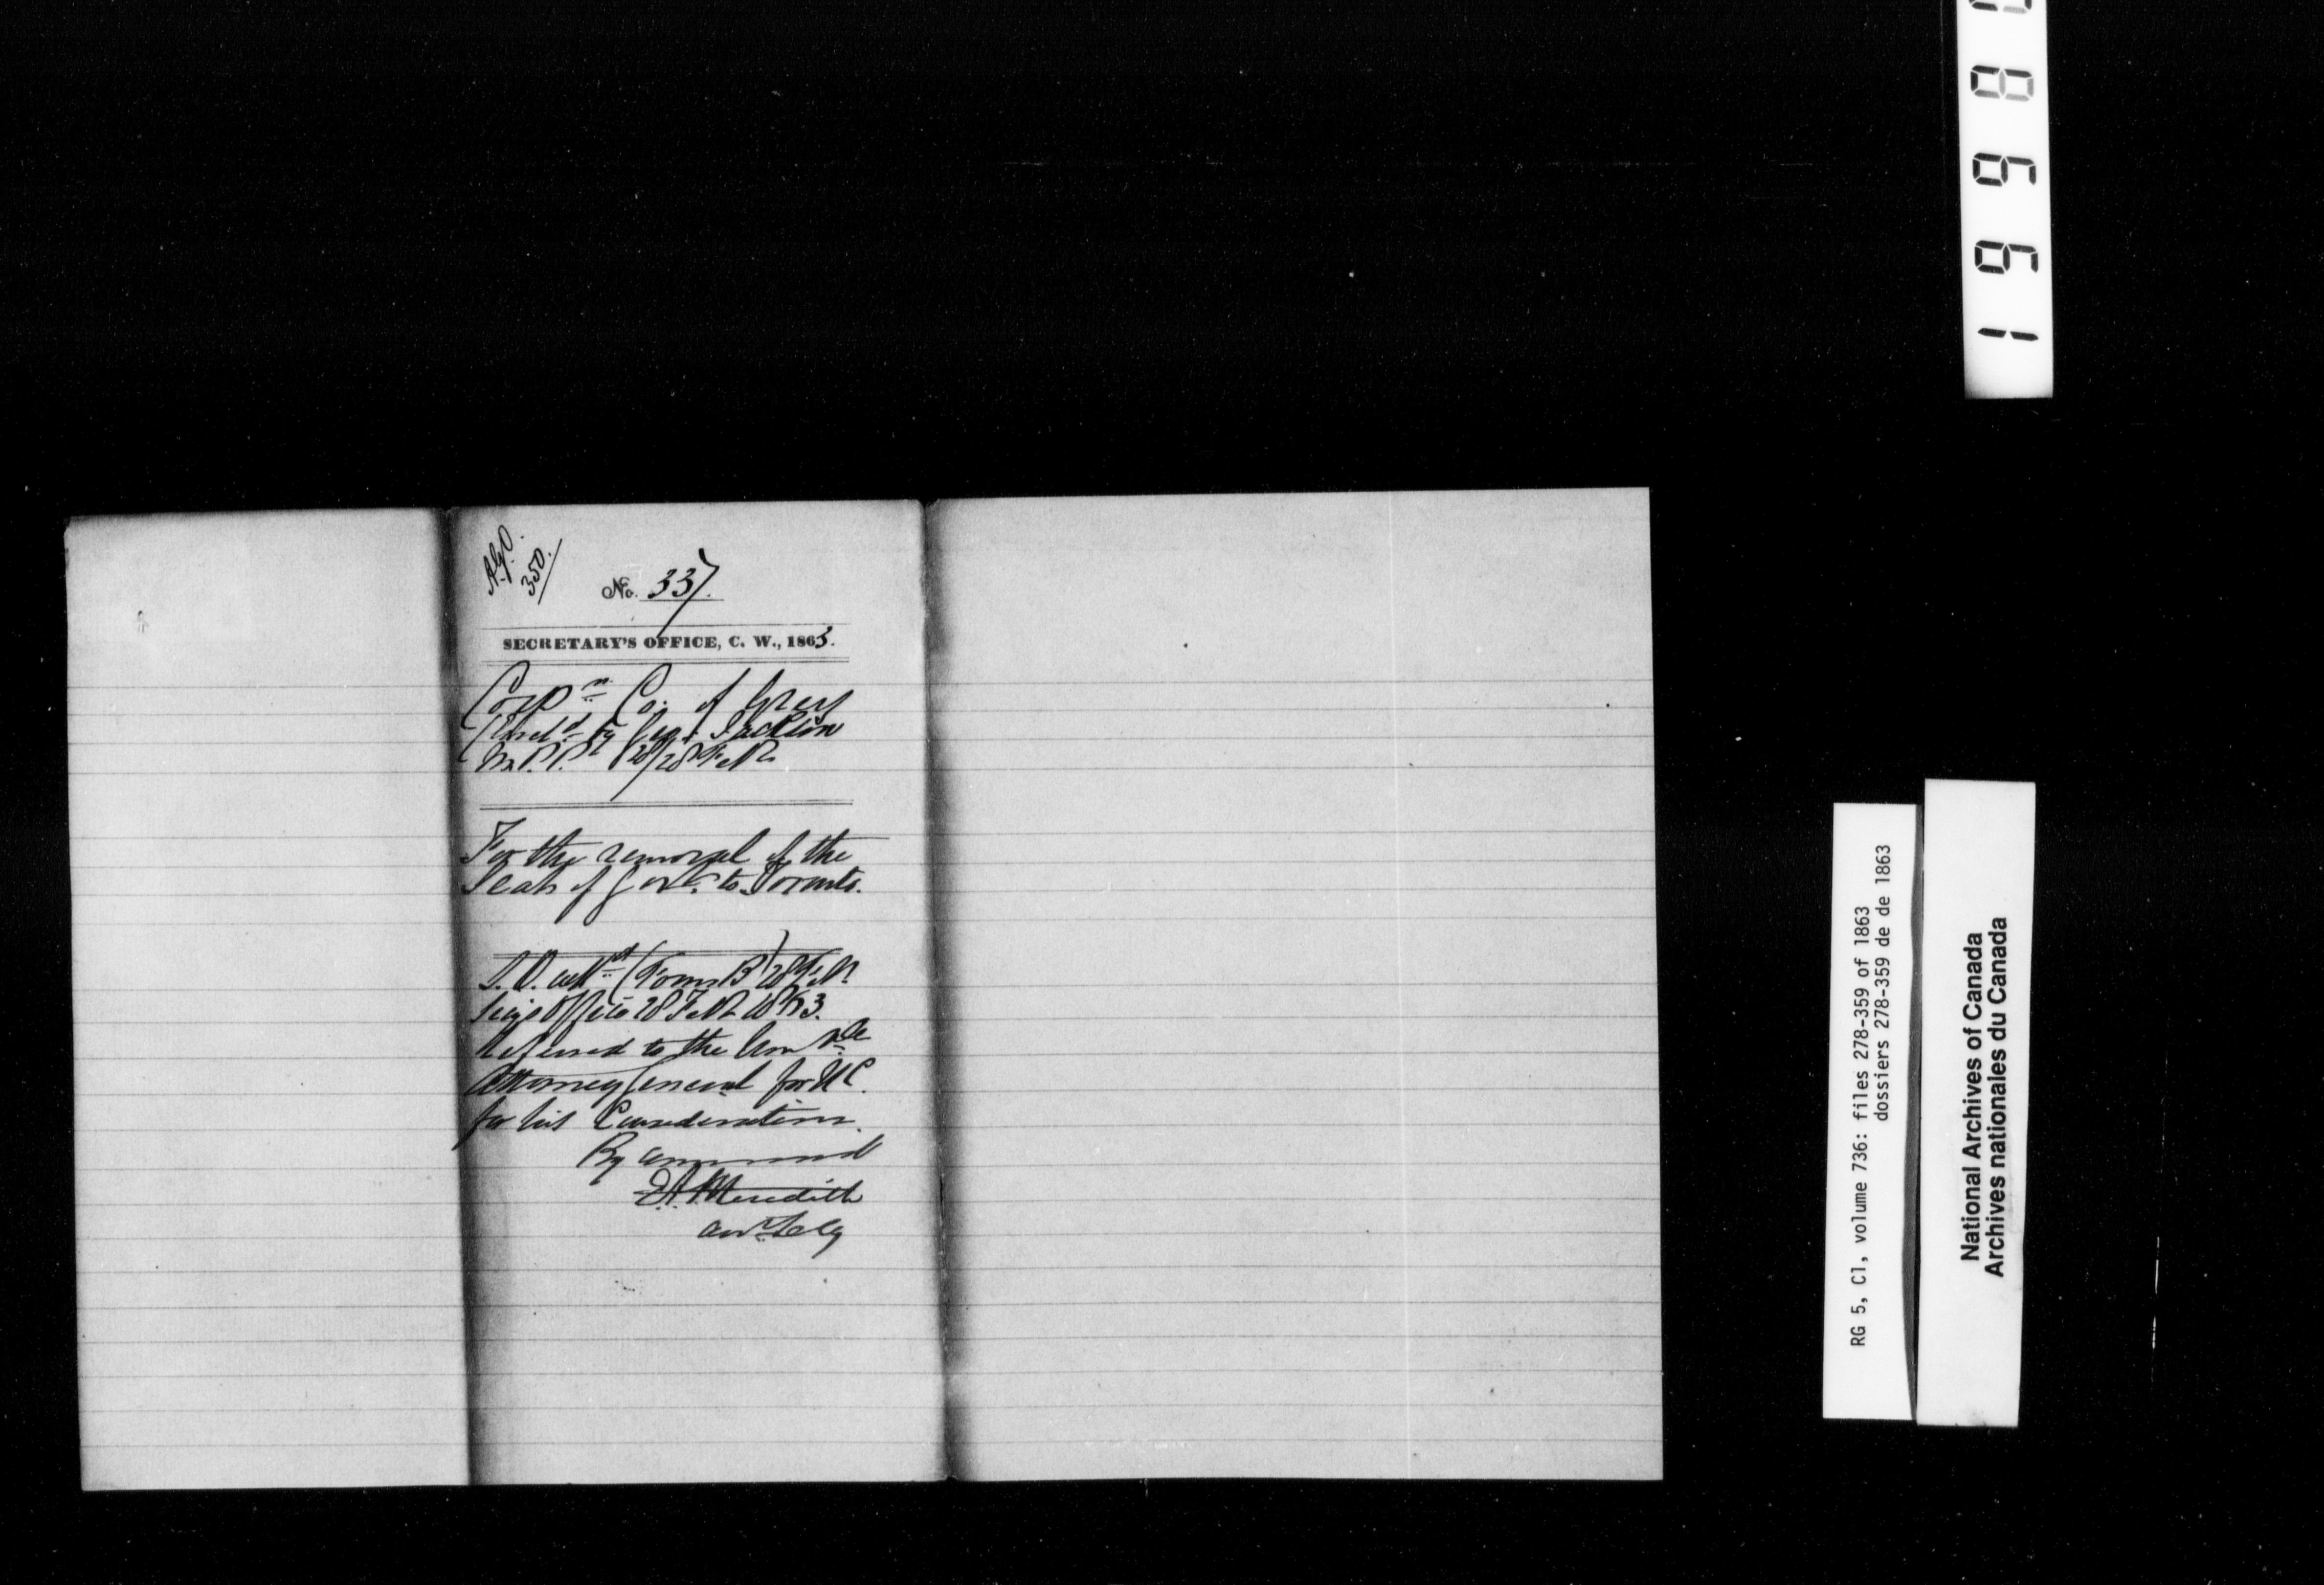 A.G.O.
350.
No. 337.
SECRETARY'S OFFICE, C. W., 1863.
Corpn. Co. of Grey
by Geo. Jackson
M.P.P. 28/28 Feb
For the removal of the
Seat of Govt. to Toronto.
(Form B) 28 Feb
Secy's Office 28 Feb 1863.
Referred to the Honble
Attorney General for U C.
for his Consideration.
By command
E.A. Meredith
Asst. Secy
1 6 6 8
RG 5, C1, volume 736: files 278-359 of 1863
dossiers 278-359 de de 1863
National Archives of Canada
Archives nationales du Canada